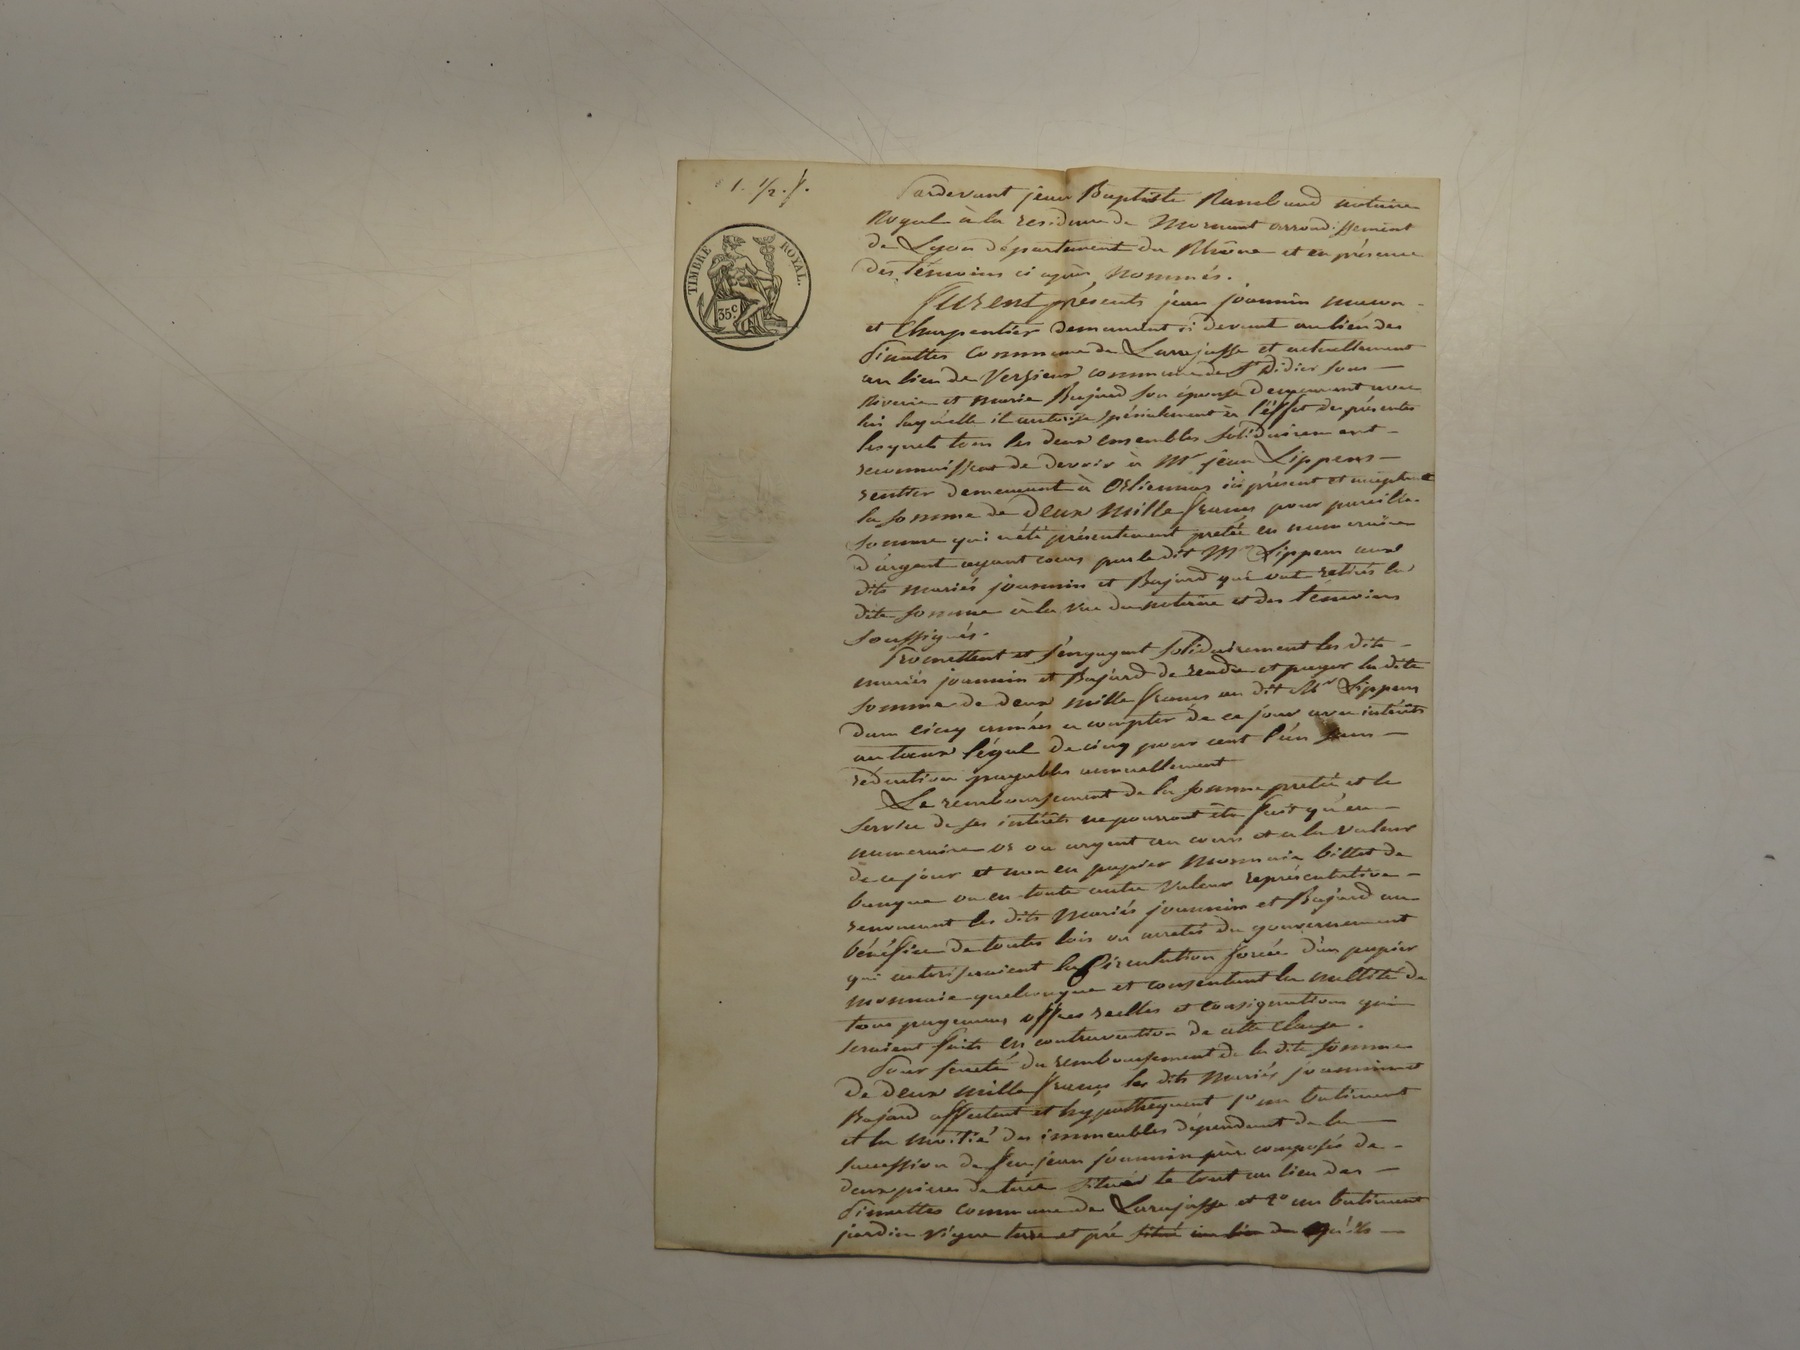 1. 1/2. f.
TIMBRE ROYAL.
35 c
Pardevant jean Baptiste Rambaud notaire
Royal à la residence de Mornant arrondissement
de Lyon département du Rhône et en présence
des témoins ci après nommés.
Furent présents jean joannin macon
et Charpentier demeurant ci devant au lieu des
Pinattes commune de Larajasse et actuellement
au lieu de Verzieux commune de St Didier sous
Riverie et marie Bajard son épouse demeurant avec
lui laquelle il autorise spécialement à l'éffet des présentes
lesquels tous les deux ensembles solidairement
reconnaissent de devoir à Mr jean Lippens
rentier demeurant à Orliennas ici présent et acceptant
la somme de deux mille francs pour pareille
somme qui a été présentement pretée en numeraire
d'argent ayant cours par le dit Mr Lippens aux
dits mariés joannin et Bajard qui ont retirés la
dite somme à la vue du notaire et des temoins
soussignés.
Promettent et s'engagent solidairement les dits
mariés joannin et Bajard de rendre et payer la dite
somme de deux mille francs au dit Mr Lippens
dans cinq années a compter de ce jour avec intérêts
au taux légal de cinq pour cent l'an sans
réduction payables annuellement
Le remboursement de la somme pretée et le
service de ses intérêts ne pourront être fait qu'en
numeraire or ou argent au cours et a la valeur
de ce jour et non en papier monnaie billet de
banque ou en toute autre valeur représentative
renoncant les dits mariés joannin et Bajard au
bénéfice de toutes lois ou arretés du gouvernement
qui autoriseraient la Circulation forcée d'un papier
monnaie quelconque et consentent la nullité de
tous payemens offres reelles et consignations qui
seraient faits en contravention de cette clause.
Pour sureté du remboursement de la dite somme
de deux mille francs les dits mariés joannin et
Bajard affectent et hypothéquent 1º un batiment
et la moitié des immeubles dépendant de la
succession de feu jean joannin père composés de
deux pieces de terre situés le tout au lieu des
Pinattes commune de Larajasse et 2º un batiment
jardin vigne terre et pré situé au lieu de